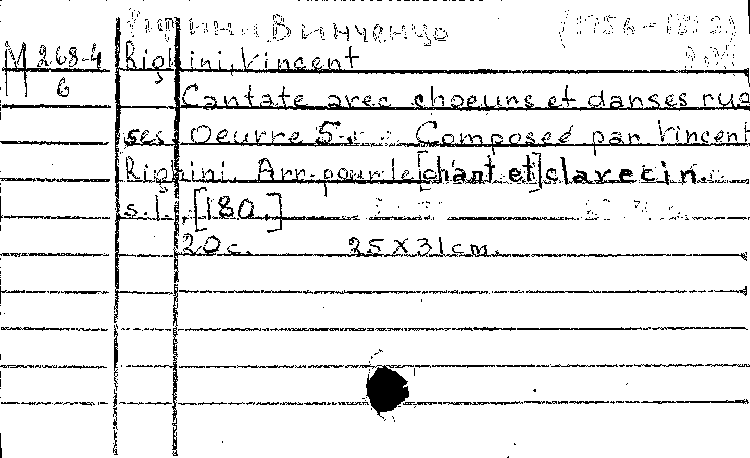 Ригини Винченцо (1756-1812)
М 268-4 Righini, Vincent
6 Cantate avec choeurs et danses rus
ses. Oeuvre 5 Composée par Vincent
Righini. Arr. pour le [chant et] clavecin.
s.l., [180.]
20c. 25X31cm.